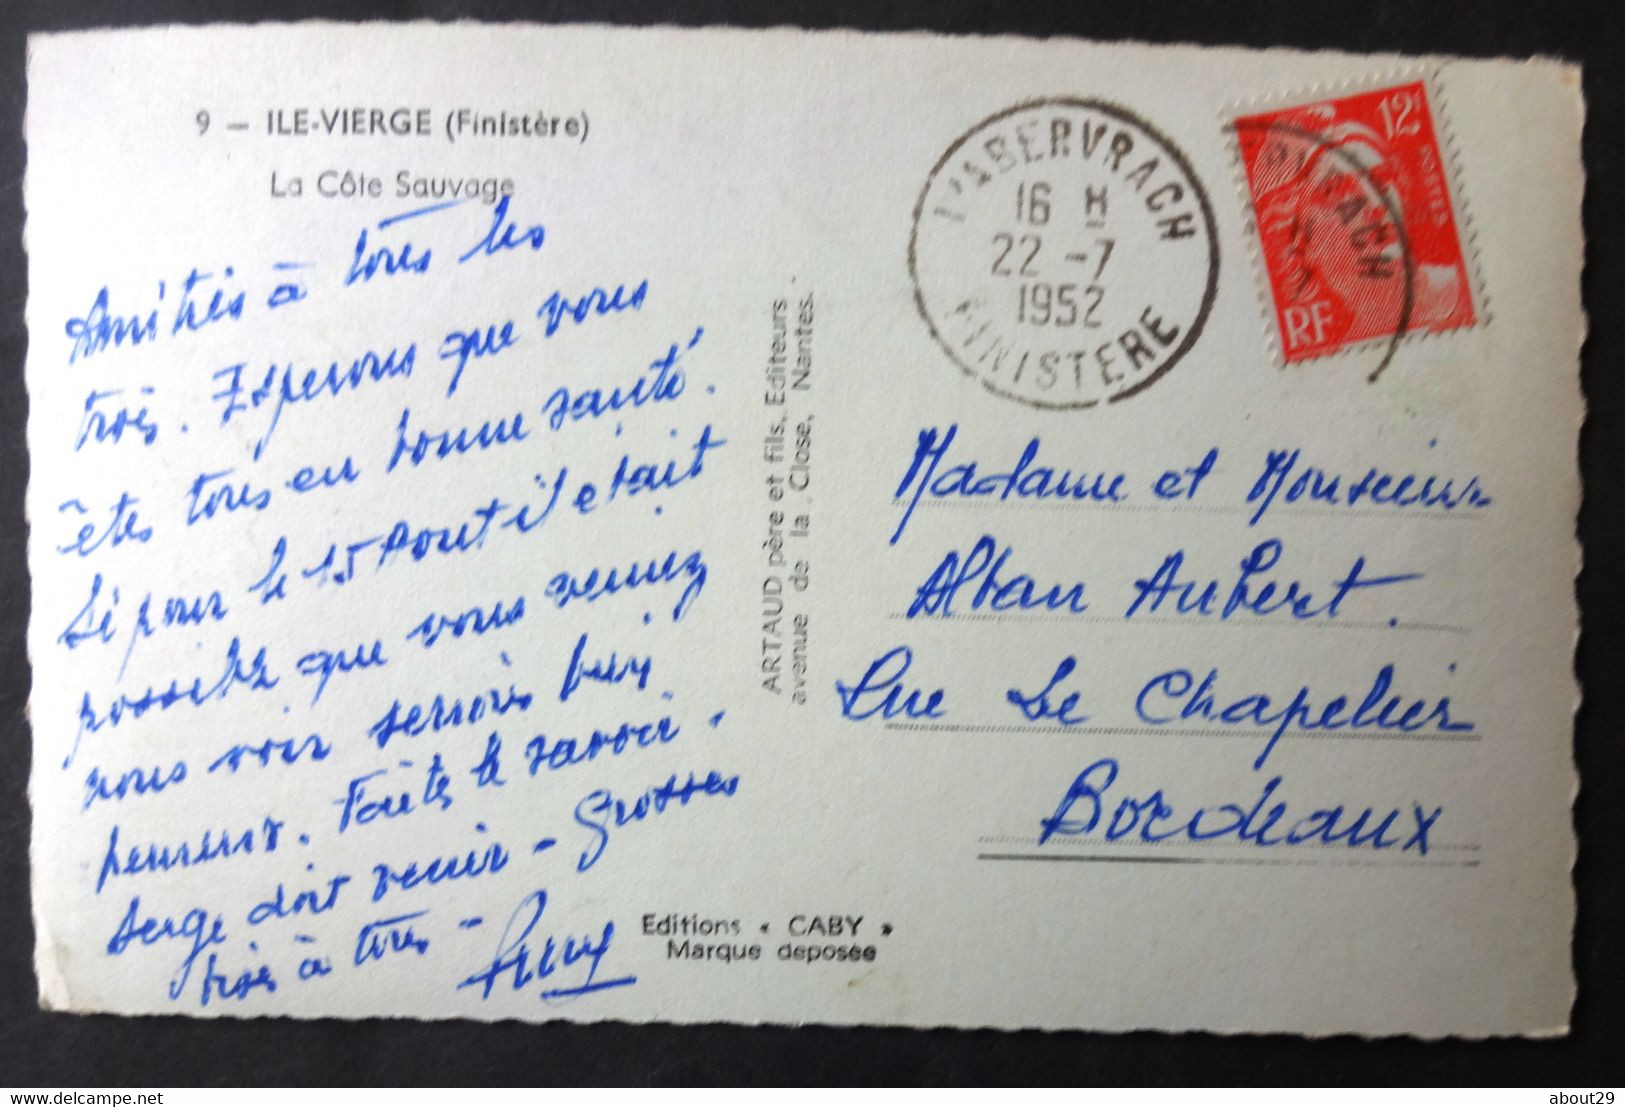 9 — ILE-VIERGE (Finistère)
La Côte Sauvage
Amitiés à tous les
trois. Esperons que vous
êtes tous en bonne santé.
Si pour le 15 Aout il etait
possible que vous veniez
nous voir serions bien
heureux. Faites le savoir.
Serge doit venir - Grosses
à tous -
ARTAUD père et fils, Editeurs
avenue de la Close, Nantes.
Editions « CABY »
Marque deposée
L'ABERVRACH
16 H
22 -7
1952
FINISTERE
12F
POSTES
RF
Madame et Monsieur
Alban Aubert.
Rue Le Chapelier
Bordeaux
delcampe.net
about29